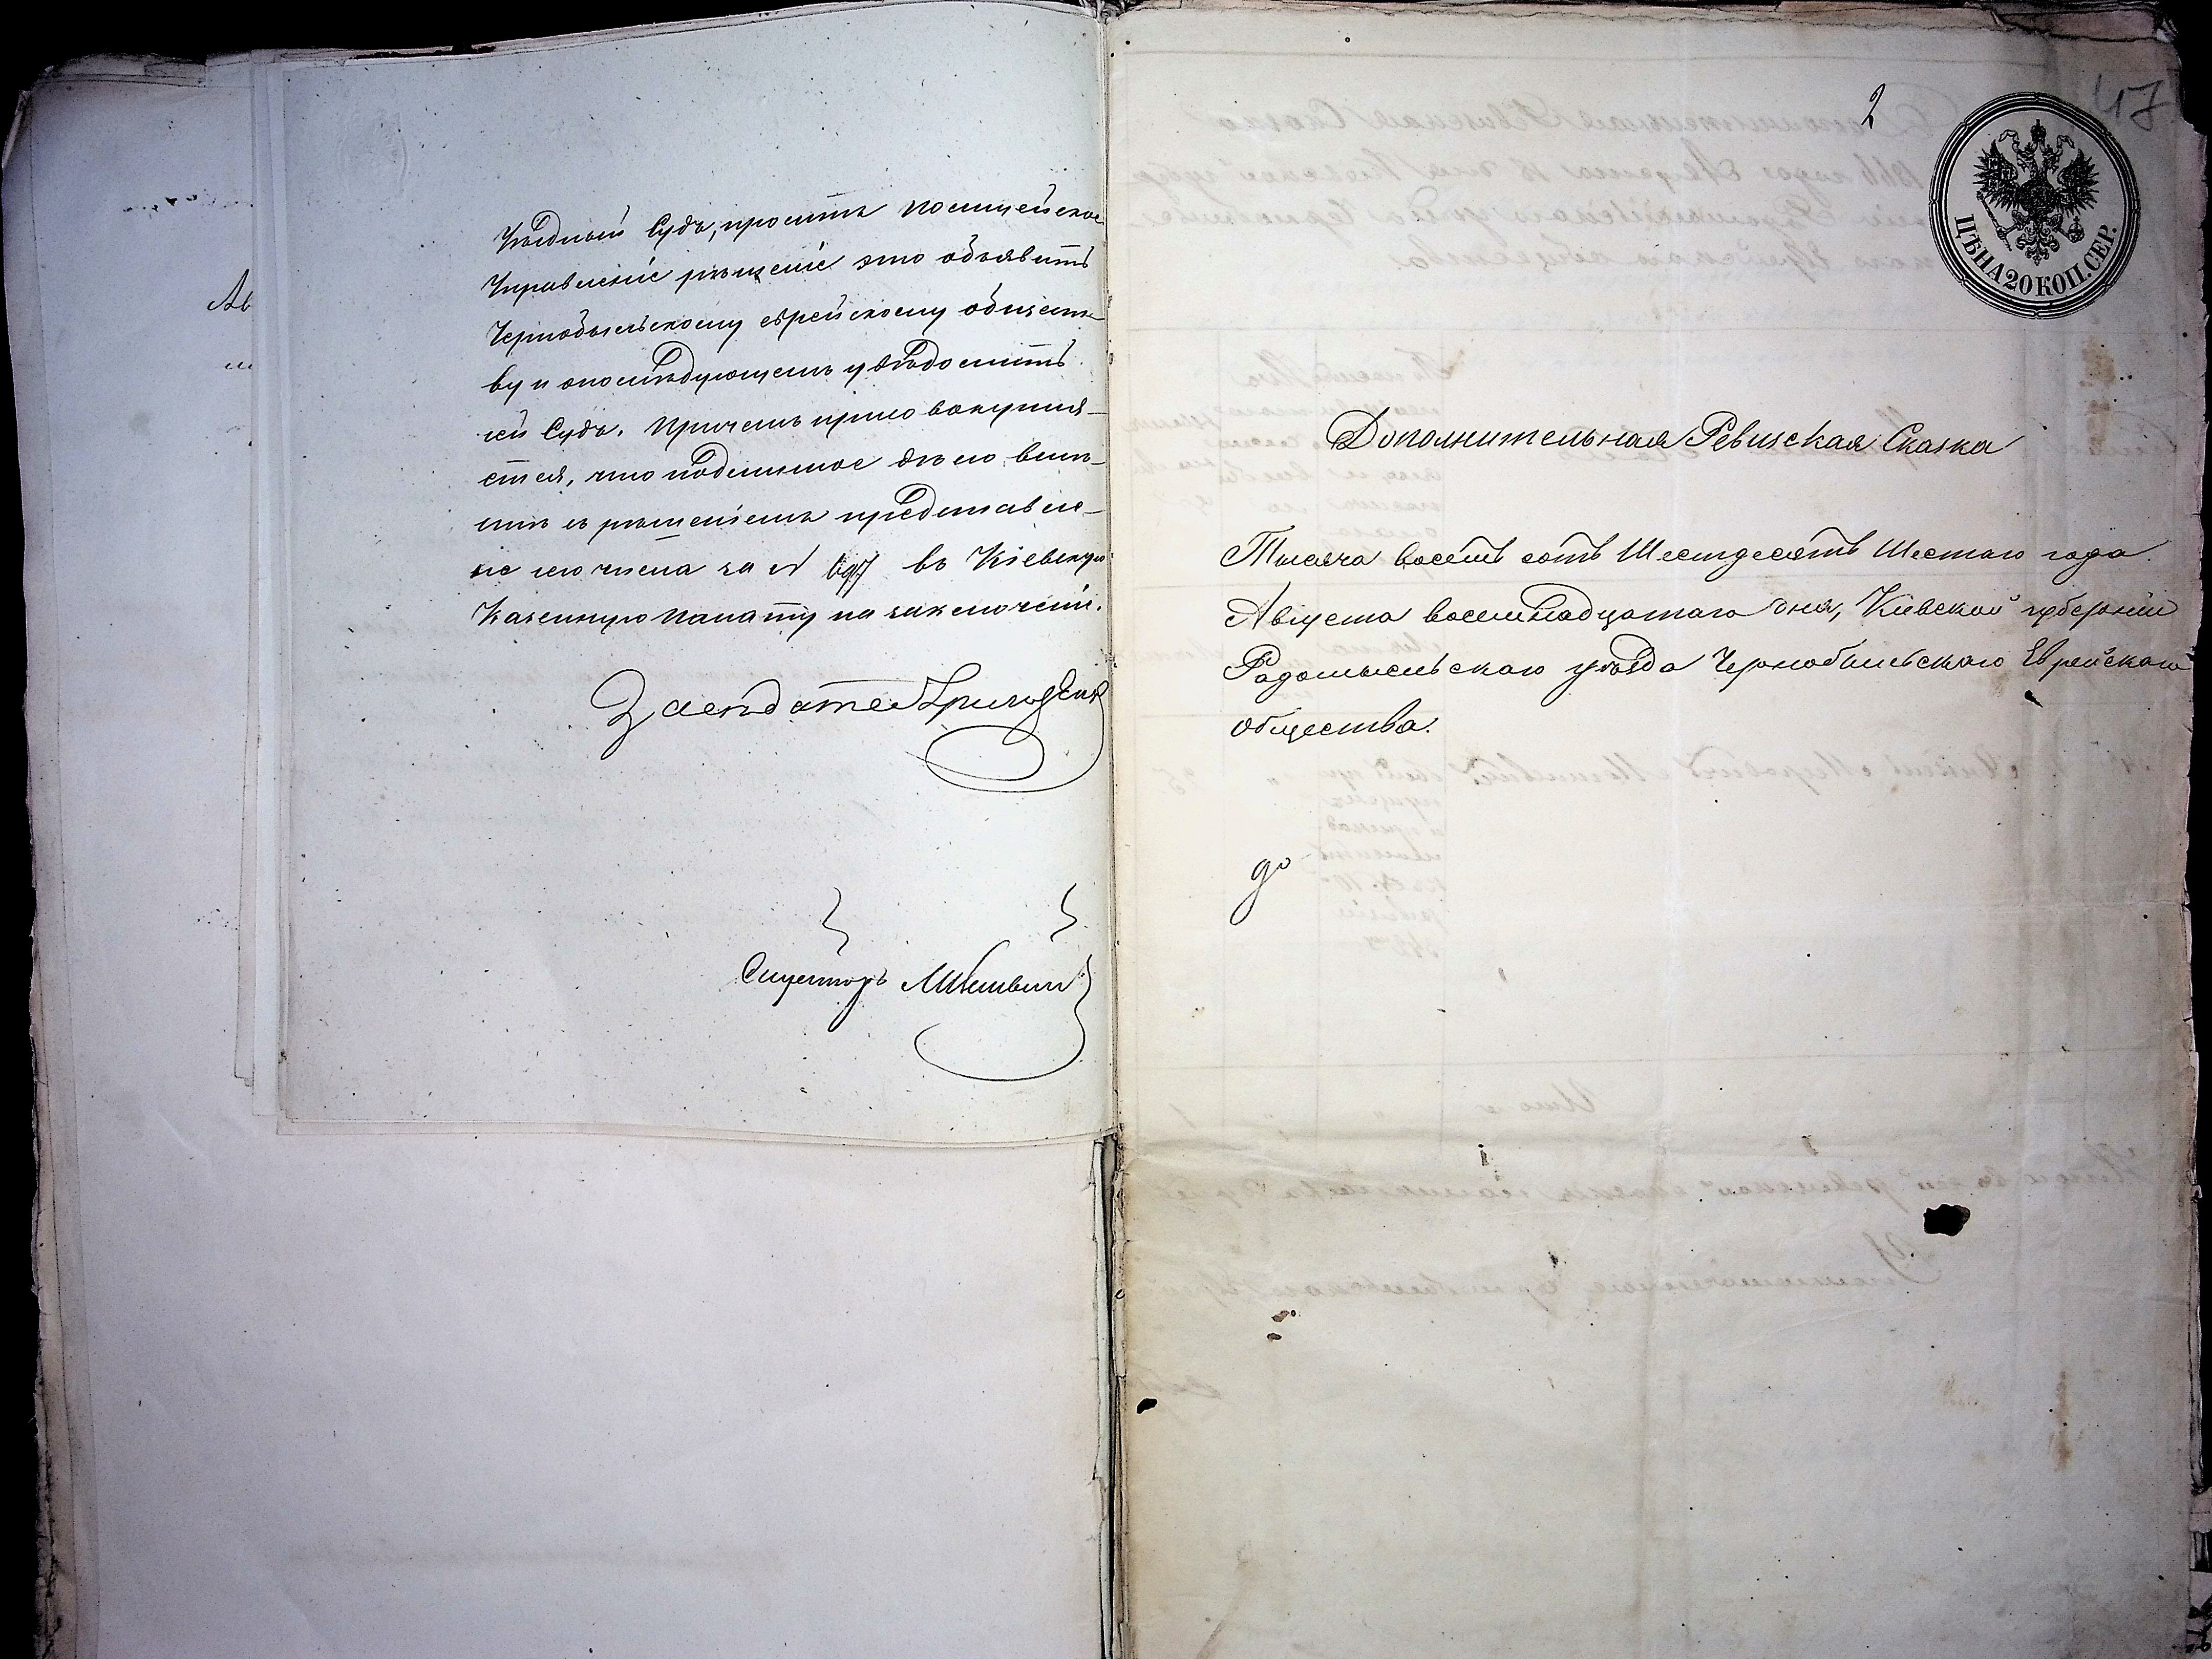 Уѣздный Судъ, проситъ Полицейское
Управленіе рѣшеніе это объявить
Чернобыльскому еврейскому обществ-
ву и опослѣдующемъ увѣдомить
сей Судъ. Причемъ присовокупля-
ется, что подлинное дѣло вмѣ-
стѣ съ рѣшеніемъ представле-
но сего числа за № 697 въ Кіевскую
Казенную Палату на заключеніе.
Засѣдатель
Секретарь
Ав
2
17
ЦѢНА 20 КОП. СЕР.
Дополнительная Ревизская Сказка
Тысяча восемь сотъ Шестдесятъ Шестаго года
Августа восемнадцатаго дня, Кіевской губерніи
Радомысльскаго уѣзда Чернобыльскаго Еврейскаго
общества.
до